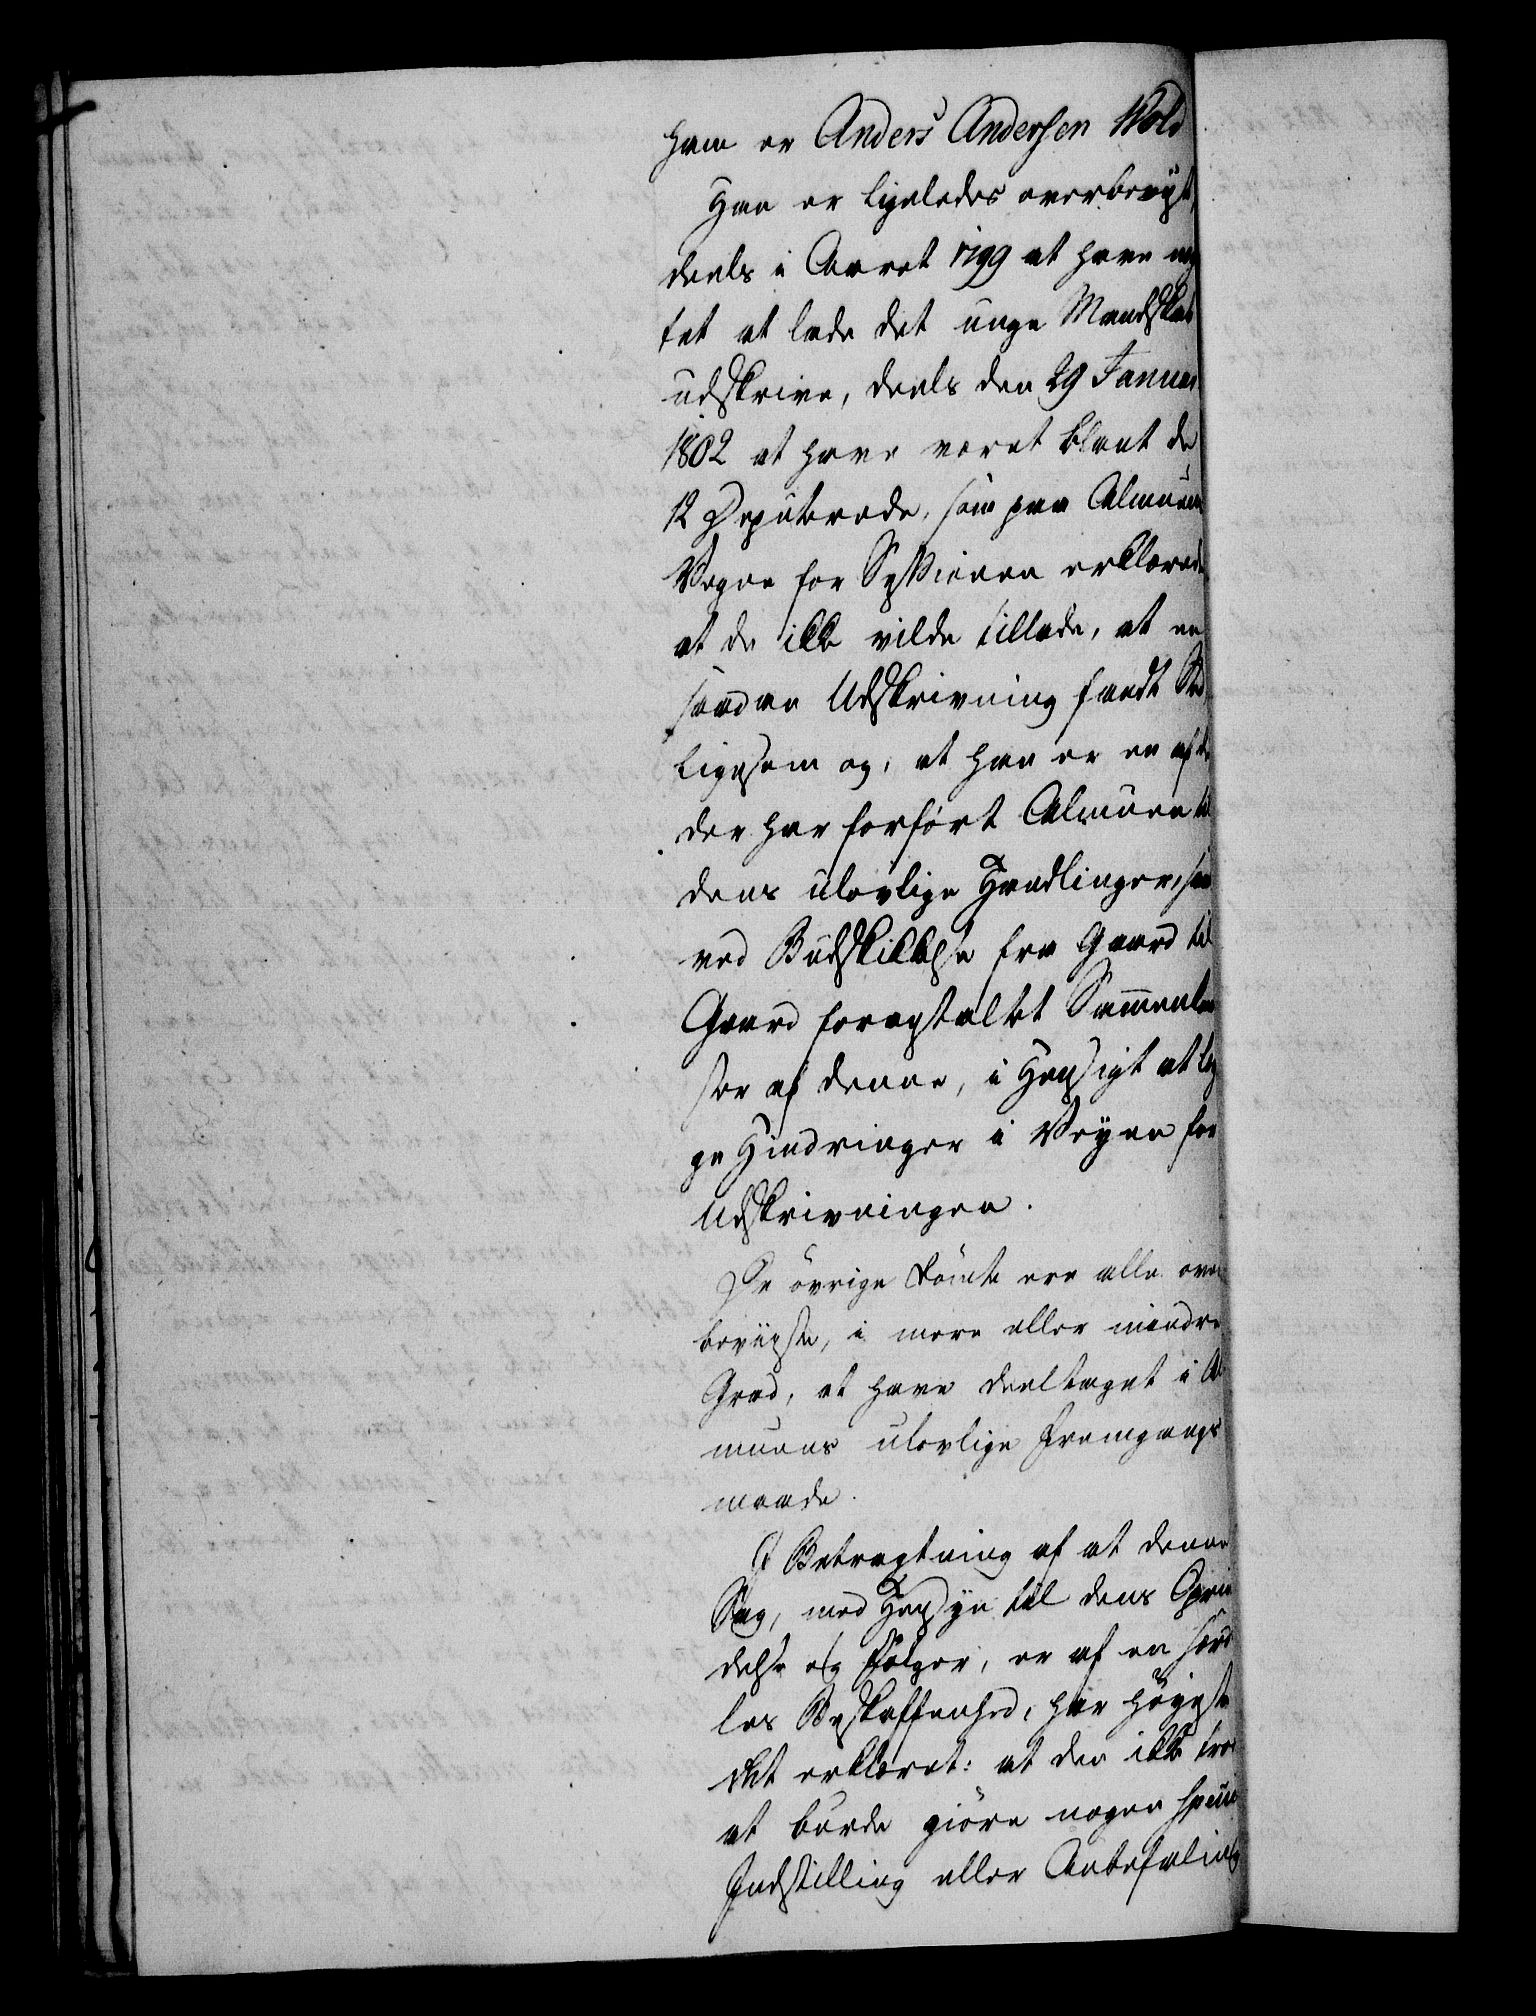 ham er Anders Andersen Wold
Han er ligeledes overbevyst,
deels i Aaret 1799 at have næg
tet at lade det unge Mandskab
udskrive, deels den 29 Januar
1802 at have været blant de
12 Deputerede, som paa Almuens
Vegne for Sessionen erklærede
at de ikke vilde tillade, at en
saadan Udskrivning fandt Sted
ligesom og, at han er en af de
der har forført Almuen til
dens ulovlige Handlinger, som
ved Budskikkelse fra Gaard til
Gaard foranstaltet Sammenkom
ster af denne, i Hensigt at læg
ge Hindringer i Veyen for
Udskrivningen.
De øvrige Dömte ere alle over
beviiste, i mere eller mindre
Grad, at have deeltaget i Al
muens ulovlige Fremgangs
maade.
I Betragtning af at denne
Sag, med Hensyn til dens Oprin
delse og Følger, er af en særde
les Beskaffenhed, har Höyeste
det erklæret: at den ikke troer
at burde giöre nogen
Indstilling eller Anbefaling